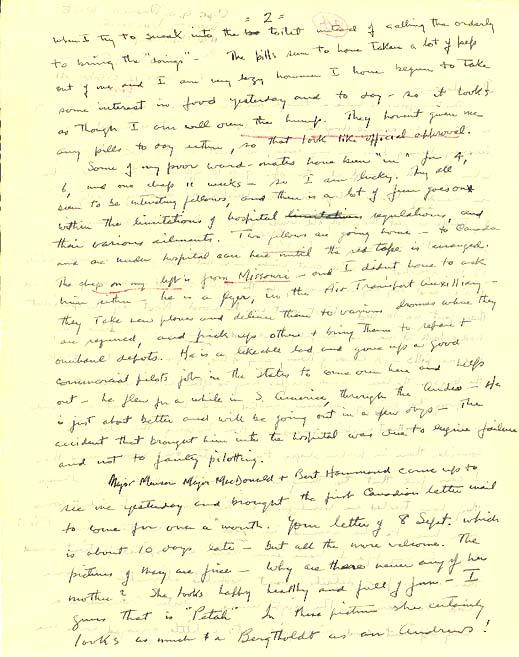 = 2 =
when I try to sneak into the toilet instead of calling the orderly
to bring the "doings" - The pills seem to have taken a lot of pep
out of me and I am very lazy however I have begun to take
some interest in food yesterday and to day - so it looks
as though I am well over the hump. They haven't given me
any pills to day either, so that looks like official approval.
Some of my poor ward-mates have been "in" for 4,
6, and one chap 11 weeks - so I am lucky. They all
seem to be interesting fellows, and there is a lot of fun goes on
within the limitations of hospital regulations, and
their various ailments. Two fellows are going home - to Canada
and are under hospital care here until the red tape is arranged.
The chap on my left is from Missouri - and I didn't have to ask
him either - he is a flyer, in the Air Transport Auxiliary -
they take new planes and deliver them to various dromes where they
are required, and pick up others & bring them to repair &
overhaul depots. He is a likeable lad and gave up a good
commercial pilots job in the States to come over here and help
out - he flew for a while in S. America, through the Andes - He
is just about better and will be going out in a few days - The
accident that brought him into the hospital was due to engine failure
and not to faulty pilotting.
Major Munson Major MacDonald & Bert Hammond came up to
see me yesterday and brought the first Canadian letter mail
to come for over a month. Your letter of 8 Sept. which
is about 10 days late - but all the more welcome. The
pictures of Mary are fine - Why are there never any of her
mother? She looks happy healthy and full of fun - I
guess that is "Petah" In these pictures she certainly
looks as much & a Bergtholdt as an Andrews!